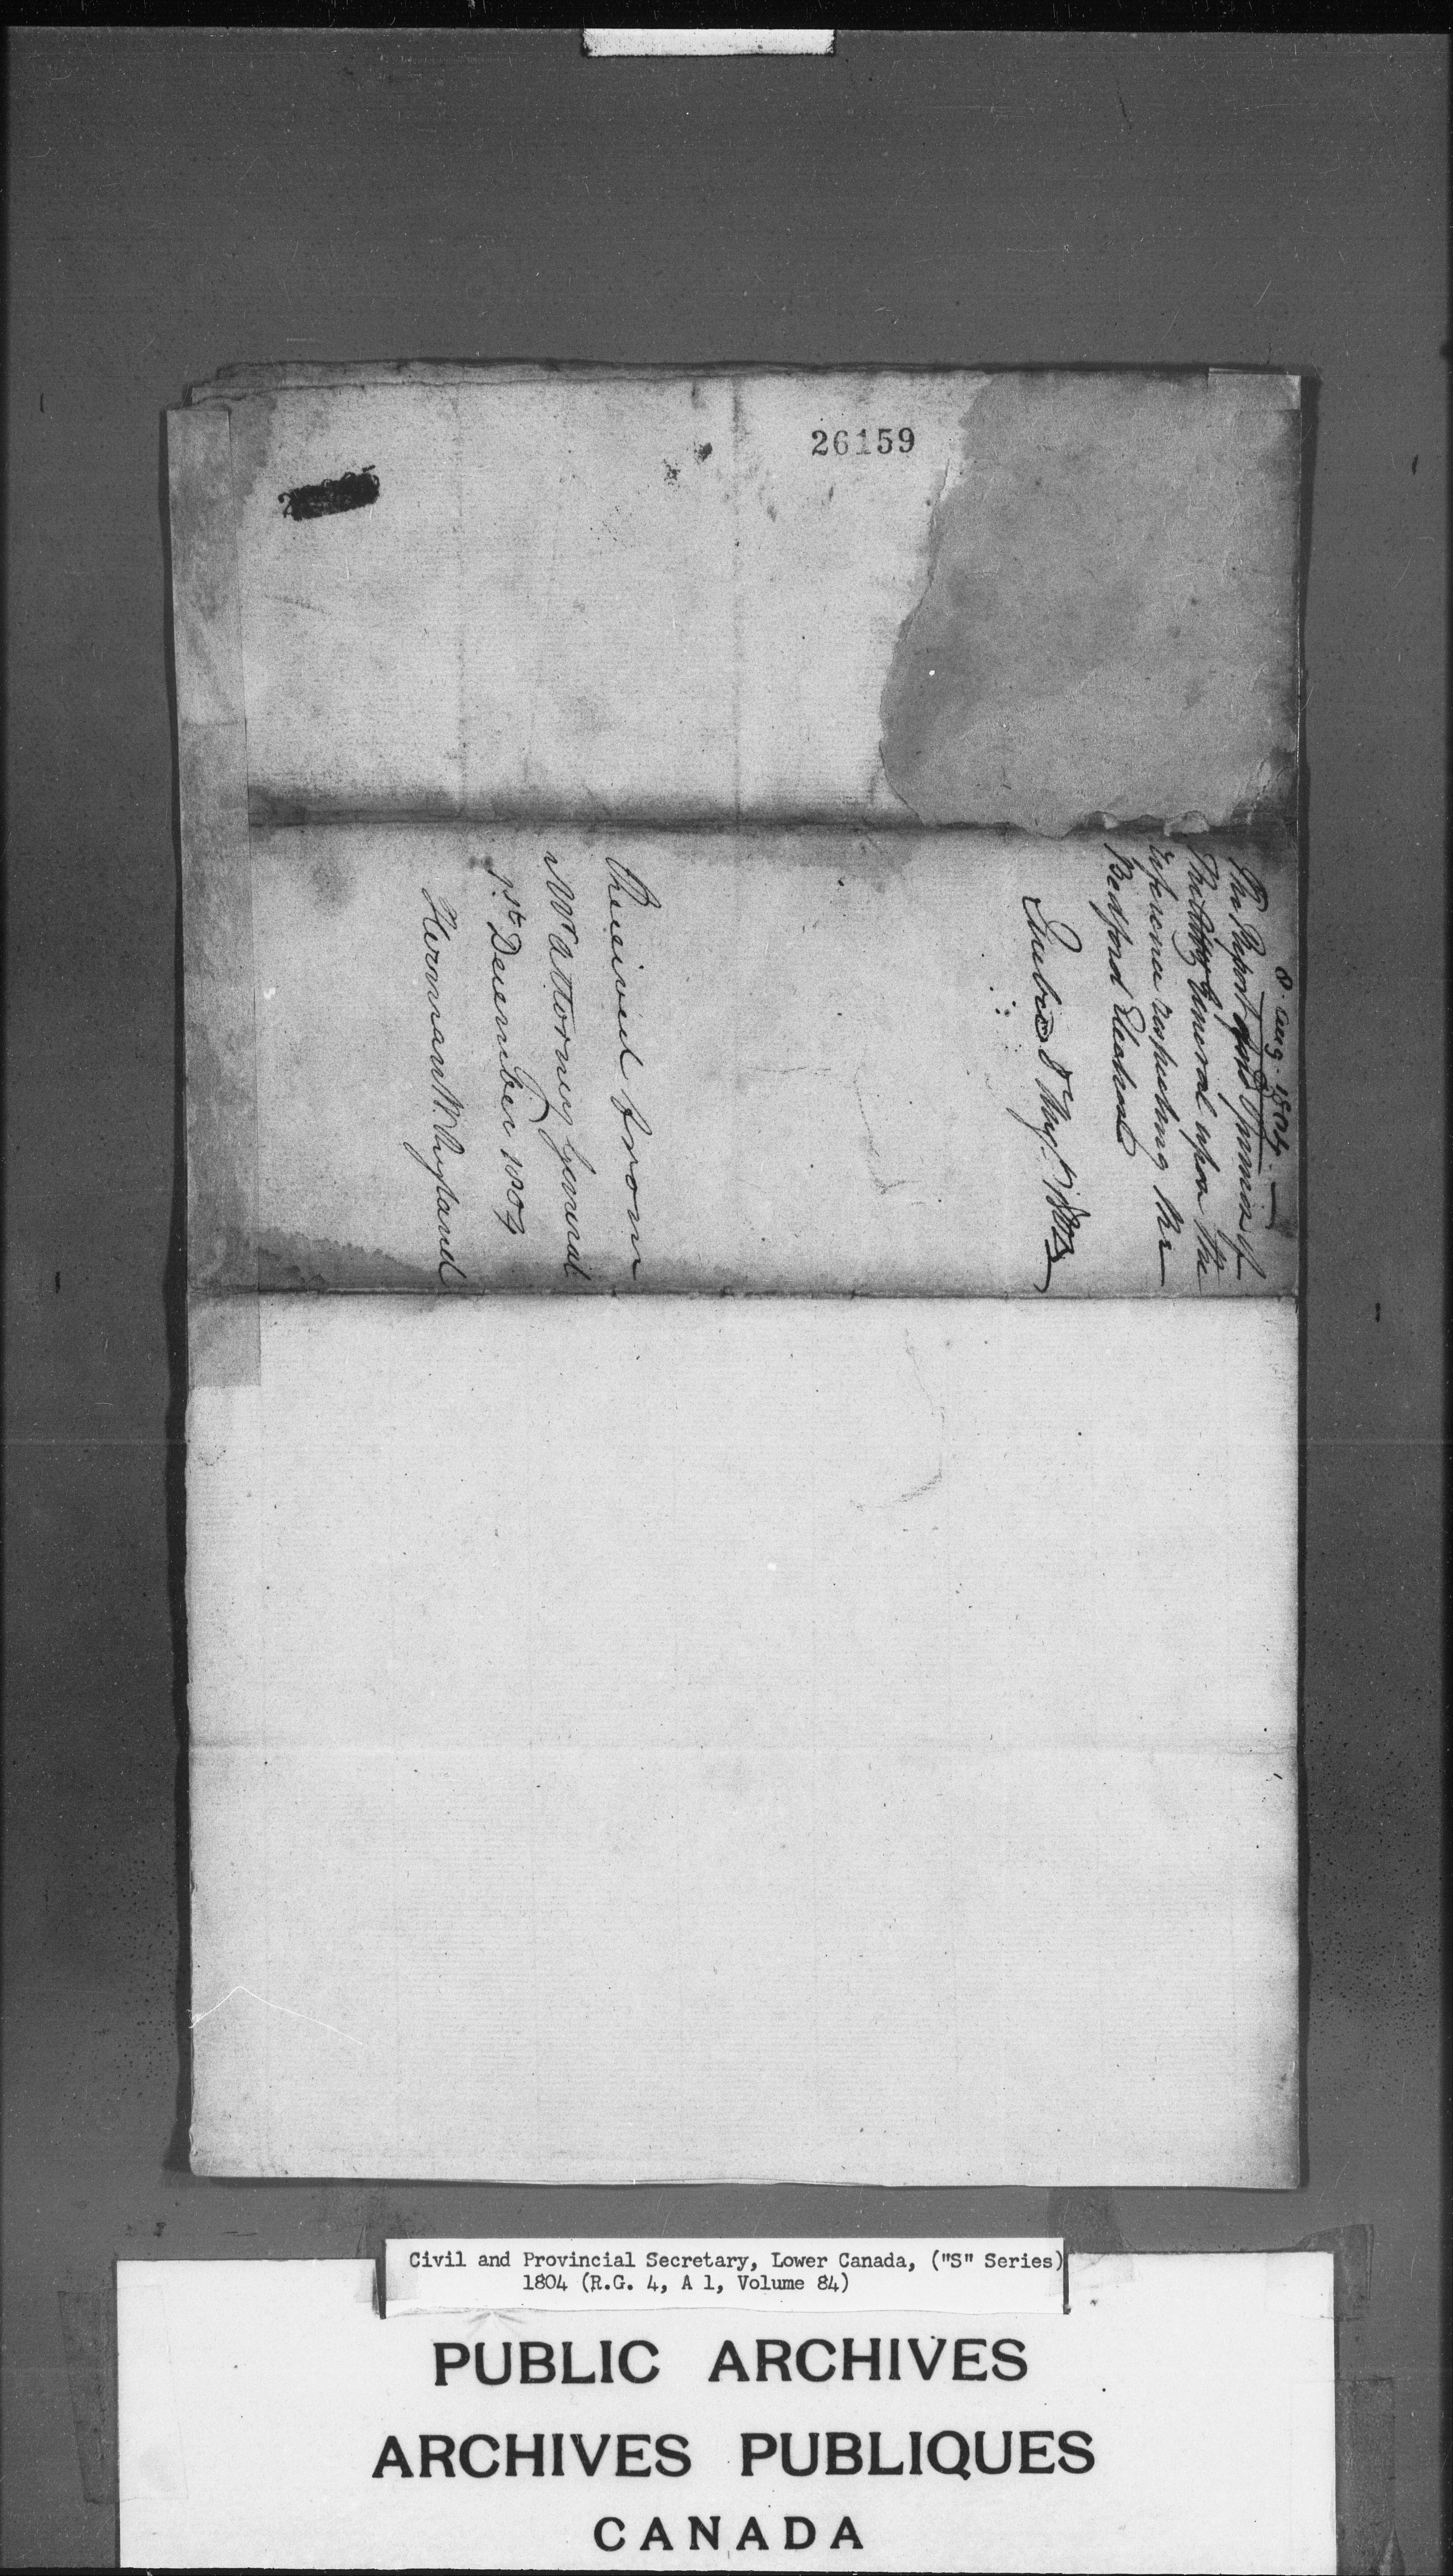 26159
8. Aug. 1804.
The Report and Opinion of
The Atty General upon the
reference respecting the
Bedford Election
Quebec 8 Augt. 1804
Received from
Mr Attorney General
1st December 1804
Herman W. Ryland
Civil and Provincial Secretary, Lower Canada, ("S" Series)
1804 (R.G. 4, A 1, Volume 84)
PUBLIC ARCHIVES
ARCHIVES PUBLIQUES
CANADA